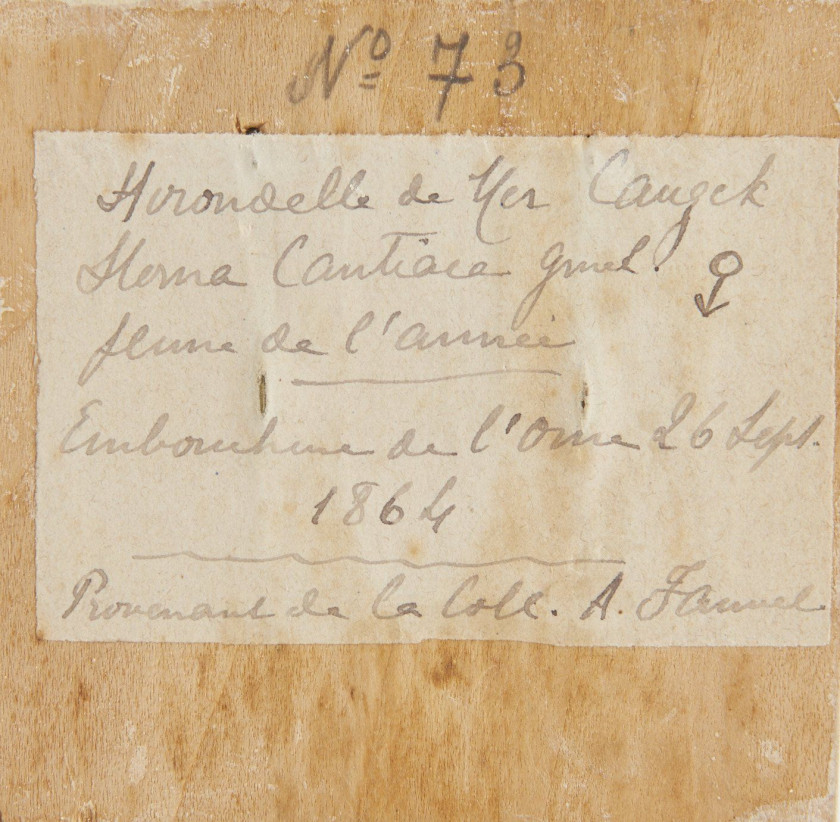 Nº 73
Hirondelle de Mer Caugek
Sterna Cantiaca gmel. ♀
jeune de l'année
Embouchure de l'Orne 26 Sept.
1864
Provenant de la Coll. A. Fauvel